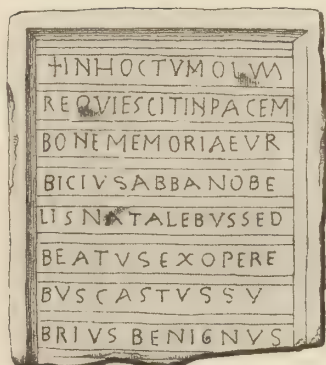 +INHOCTVMOLVM
REQVIESCITINPACEM
BONEMEMORIAEVR
BICIVSABBANOBE
LISNATALEBVSSED
BEATVSEXOPERE
BVSCASTVSSV
BRIVS BENIGNVS